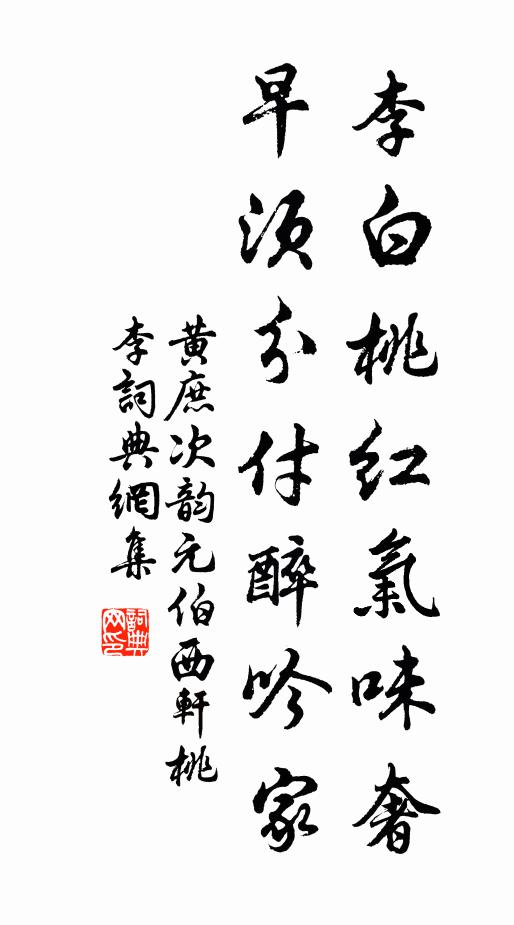 李白桃红氣味奢
早须分付醉吟家
黄庶次韵元伯西軒桃
李詞典網集
詞典
网印